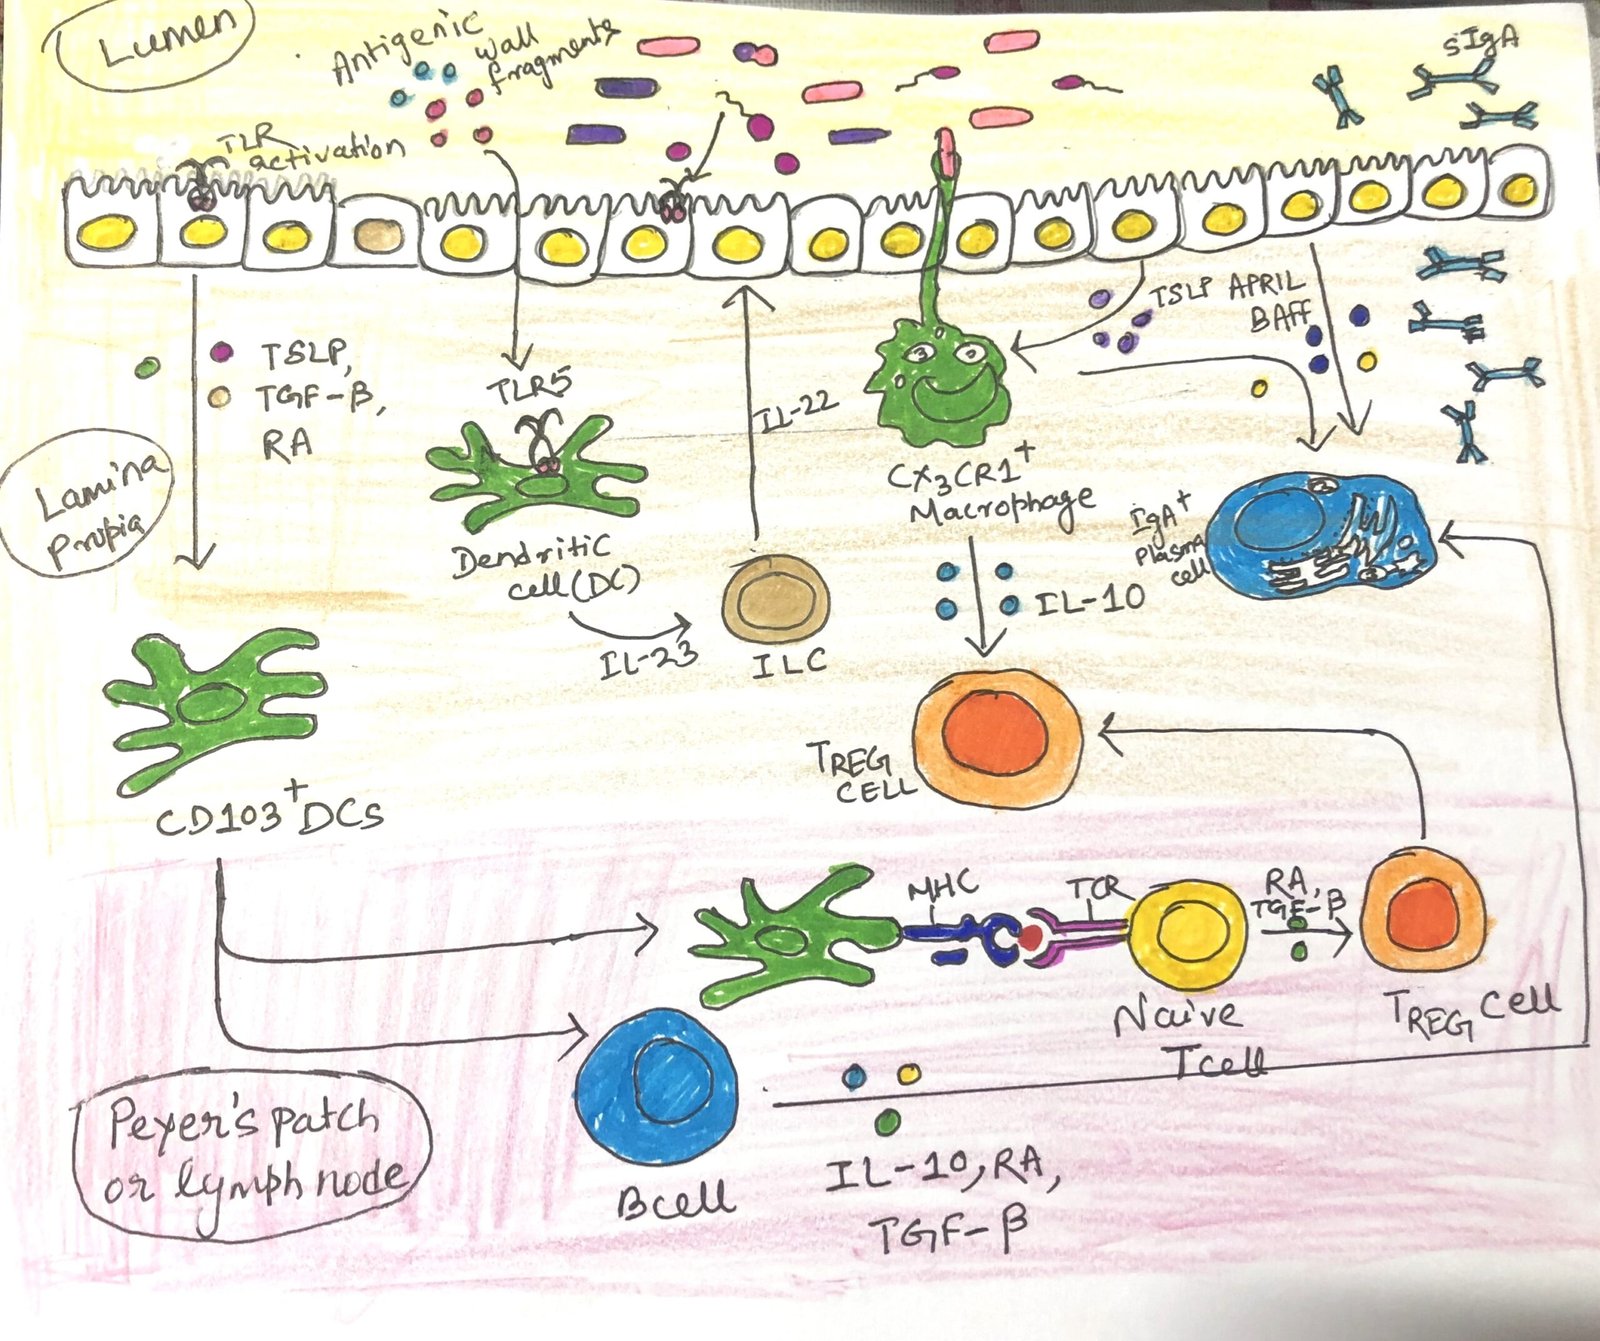 Lumen
Antigenic
wall
fragments
sIgA
TLR
activation
TSLP,
TGF-β,
RA
TLR5
Dendritic
cell(DC)
IL-23
ILC
IL-22
CX3CR1+
Macrophage
TSLP APRIL
BAFF
IgA+
plasma
cell
IL-10
Lamina
propia
TREG
CELL
CD103+DCs
MHC
TCR
RA,
TGF-β
Naive
Tcell
TREG cell
Peyer's patch
or lymph node
Bcell
IL-10, RA,
TGF-β